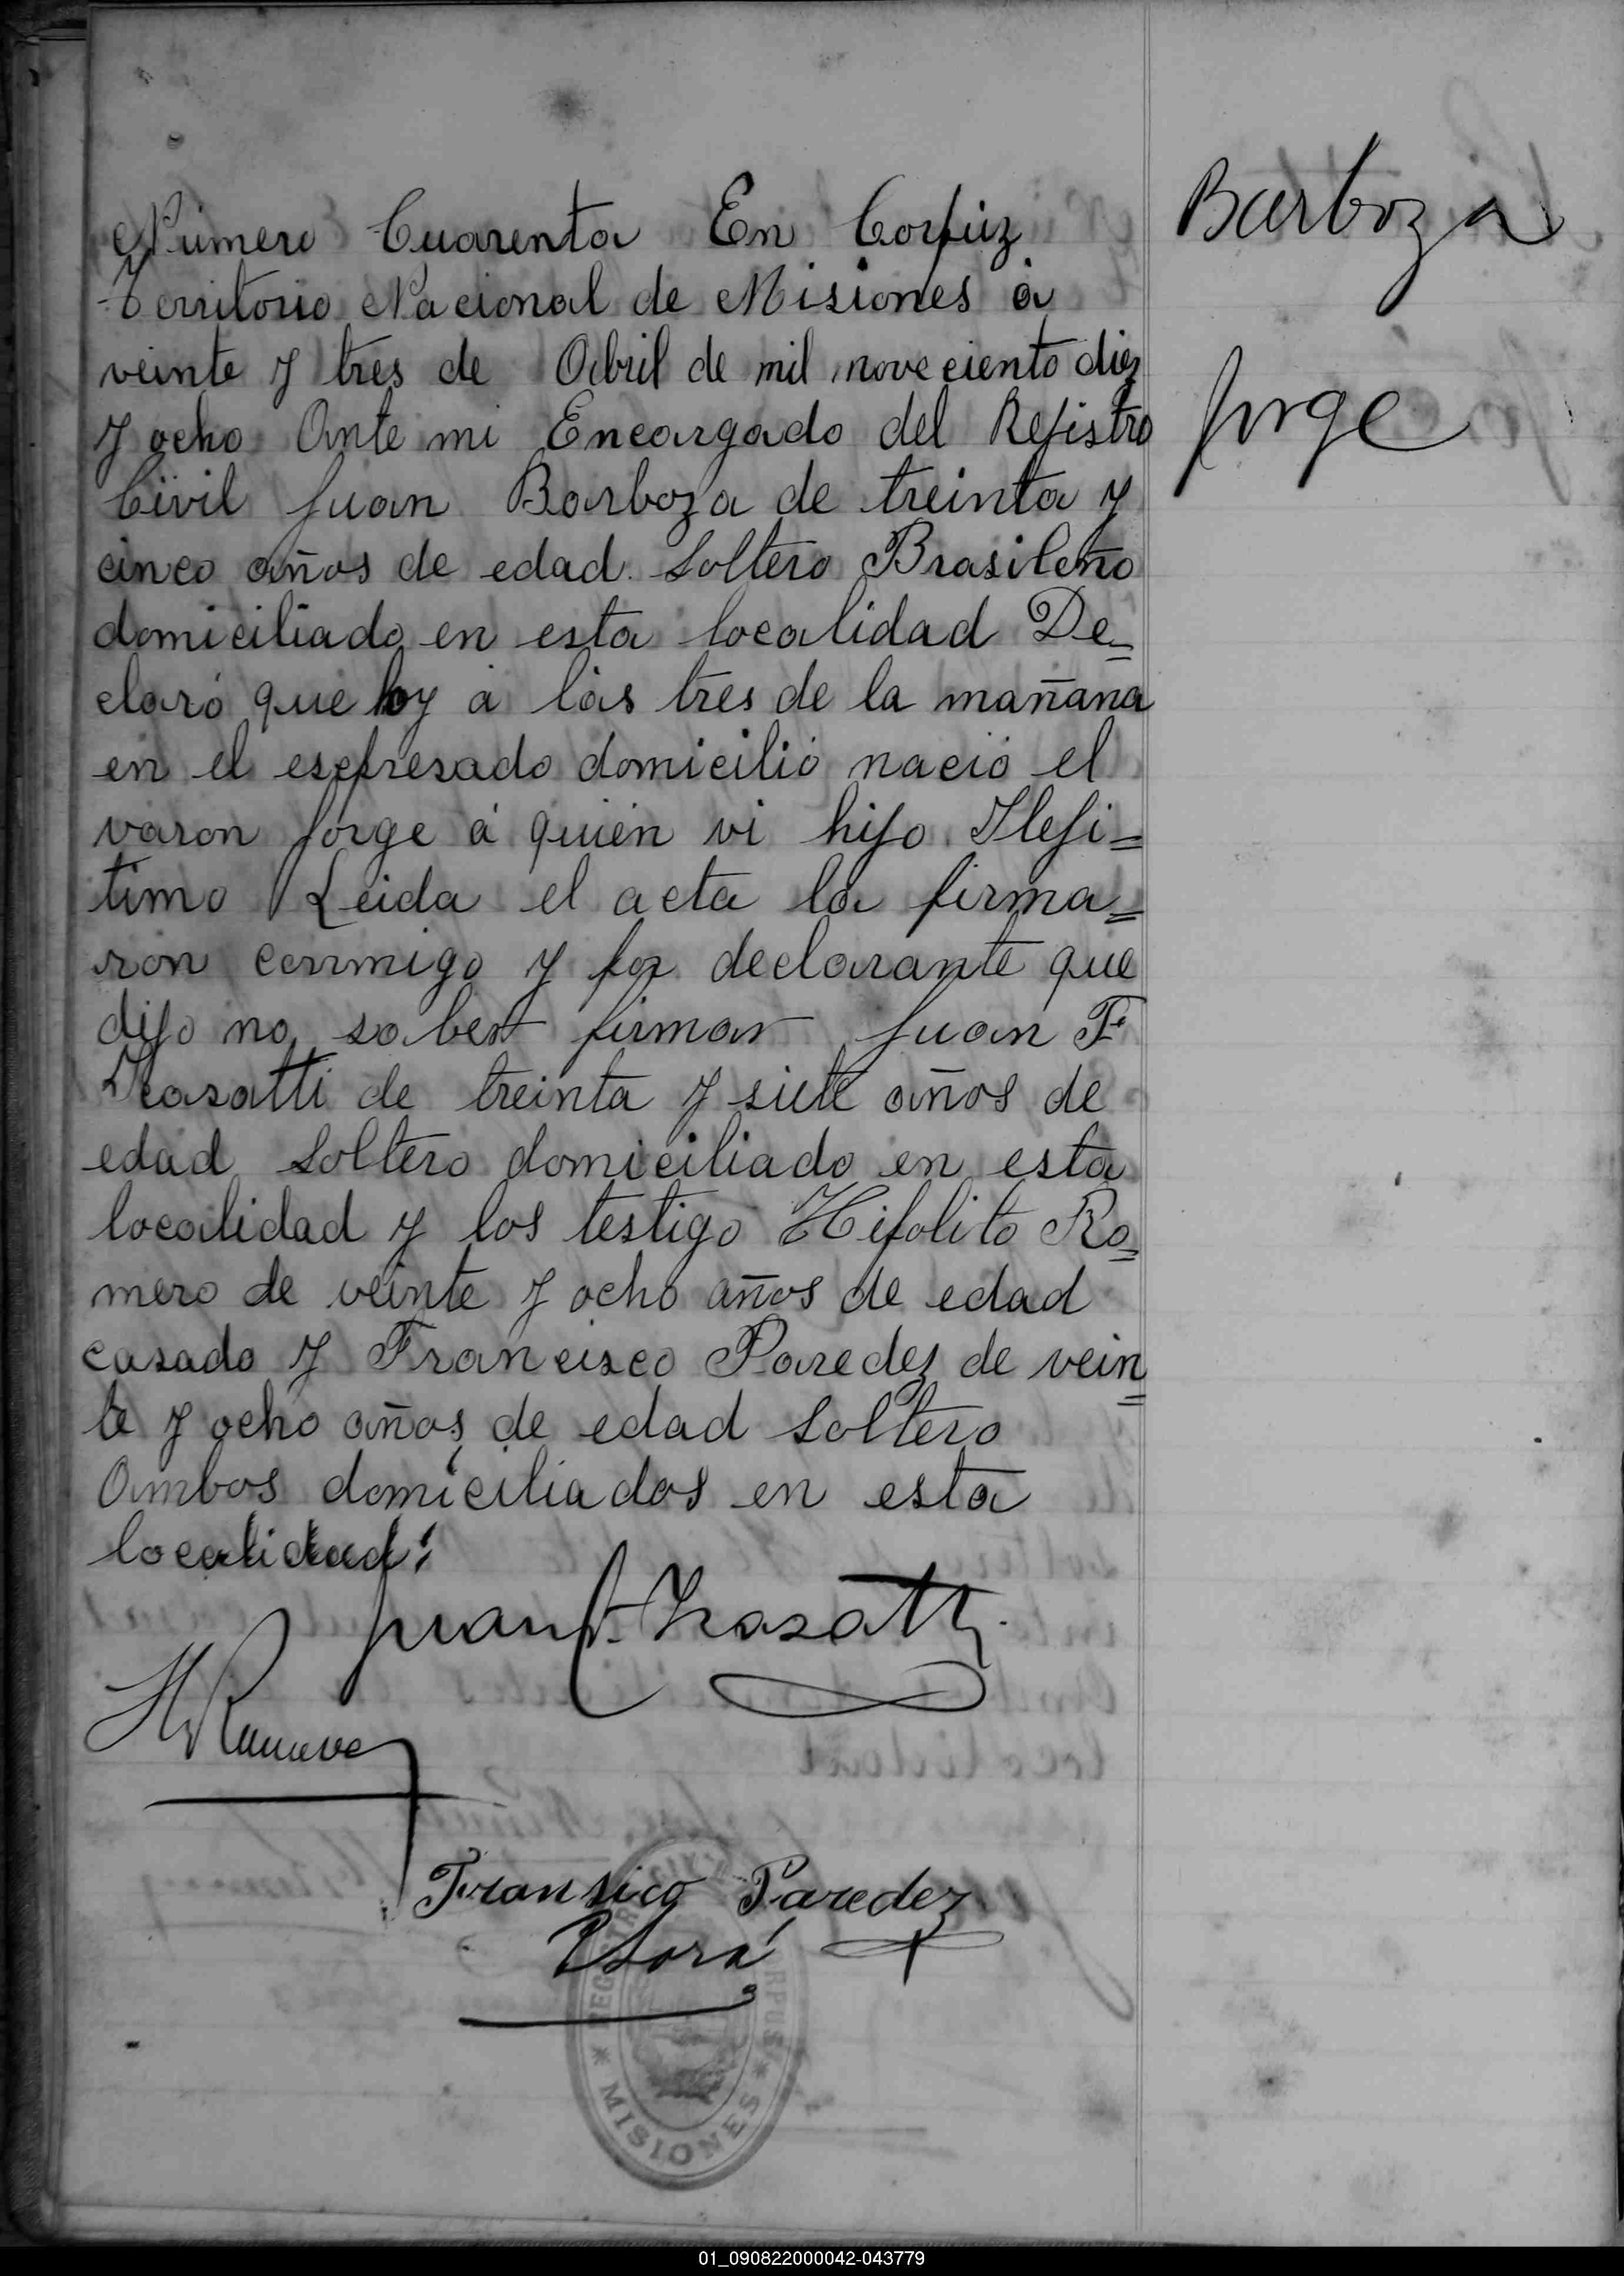 Barboza
Jorge
Número Cuarenta En Corpúz
Territorio Nacional de Misiones á
veinte y tres de Abril de mil noveciento diez
y ocho Ante mi Encargado del Rejistro
Civil Juan Barboza de treinta y
cinco años de edad. Soltero Brasileño
domiciliado en esta localidad De=
claró que hoy á las tres de la mañana
en el esepresado domicilió nació el
varon Jorge á quien vi hijo Ileji=
timo Leida el acta la firma=
ron conmigo y por declarante que
dijo no saber firmar Juan F
Krasatti de treinta y siete años de
edad Soltero domiciliado en esta
localidad y los testigo Hipolito Ro=
mero de veinte y ocho años de edad
casado y Francisco Paredez de vein=
te y ocho años de edad Soltero
Ambos domiciliados en esta
localidad:
Juan F. Krasatti
H
Fransico Paredez
MISIONES
01_090822000042-043779